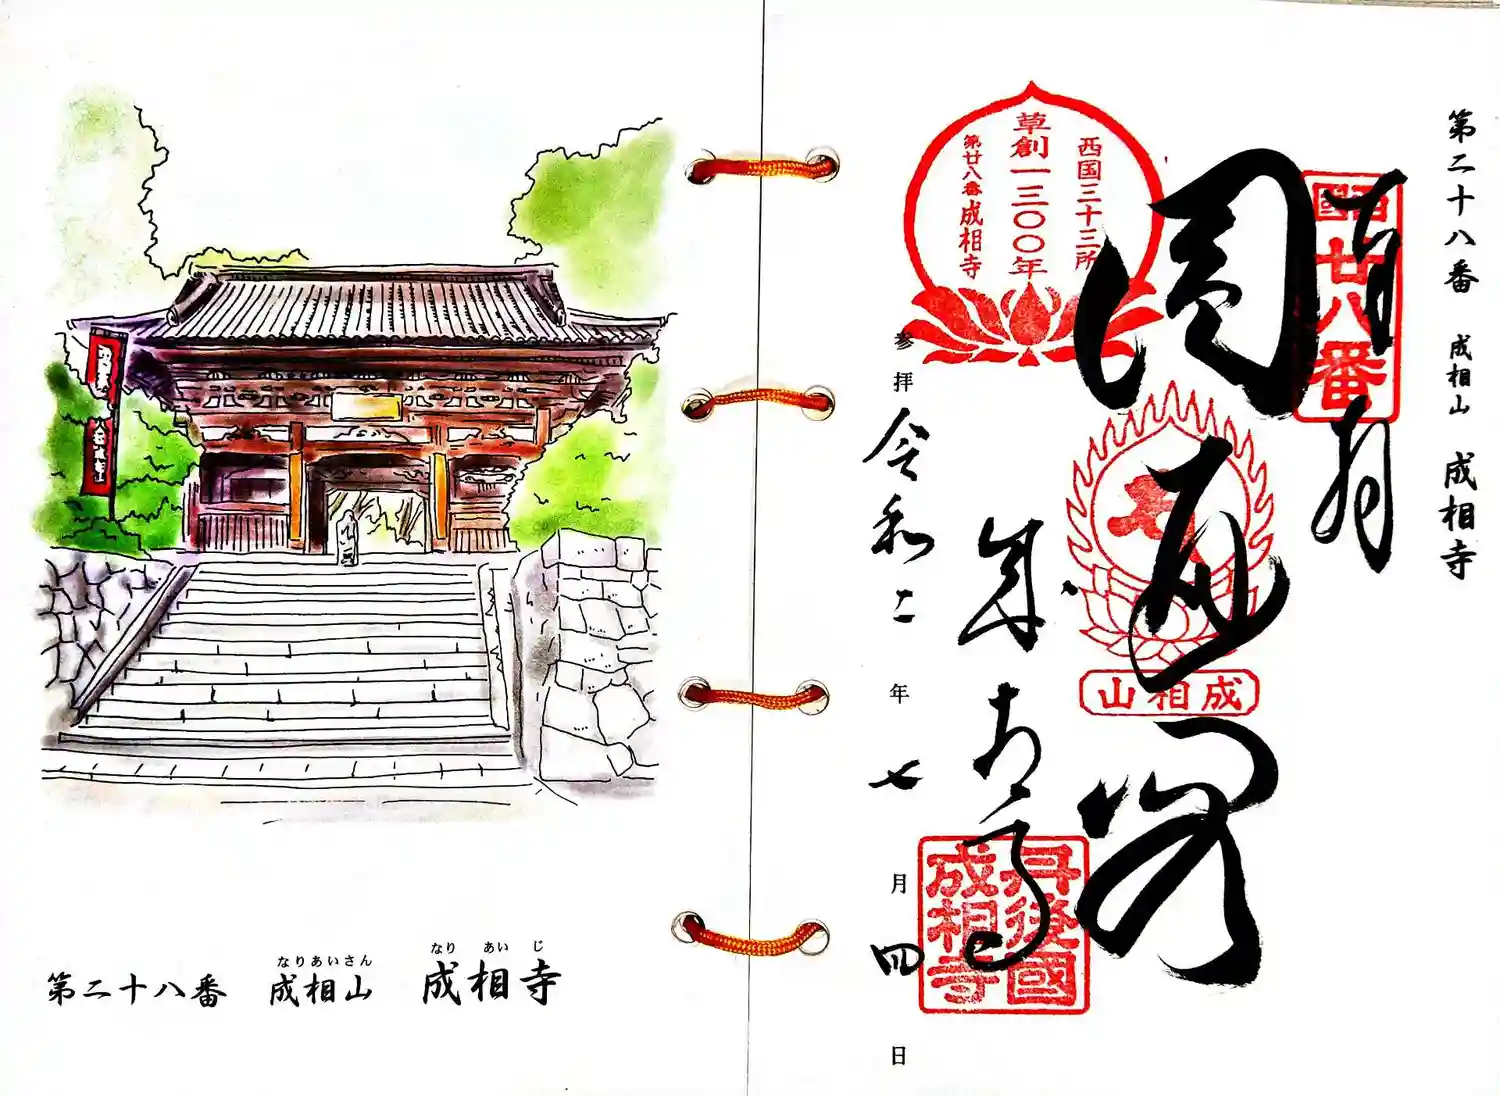 第二十八番 成相山 成相寺
西国
廿八番
奉拝
圓通閣
成相山
西国三十三所
草創一三〇〇年
第廿八番成相寺
成相寺
丹後國
成相寺
参拝 令和二年七月四日
なりあいさん なり あい じ
第二十八番 成相山 成相寺